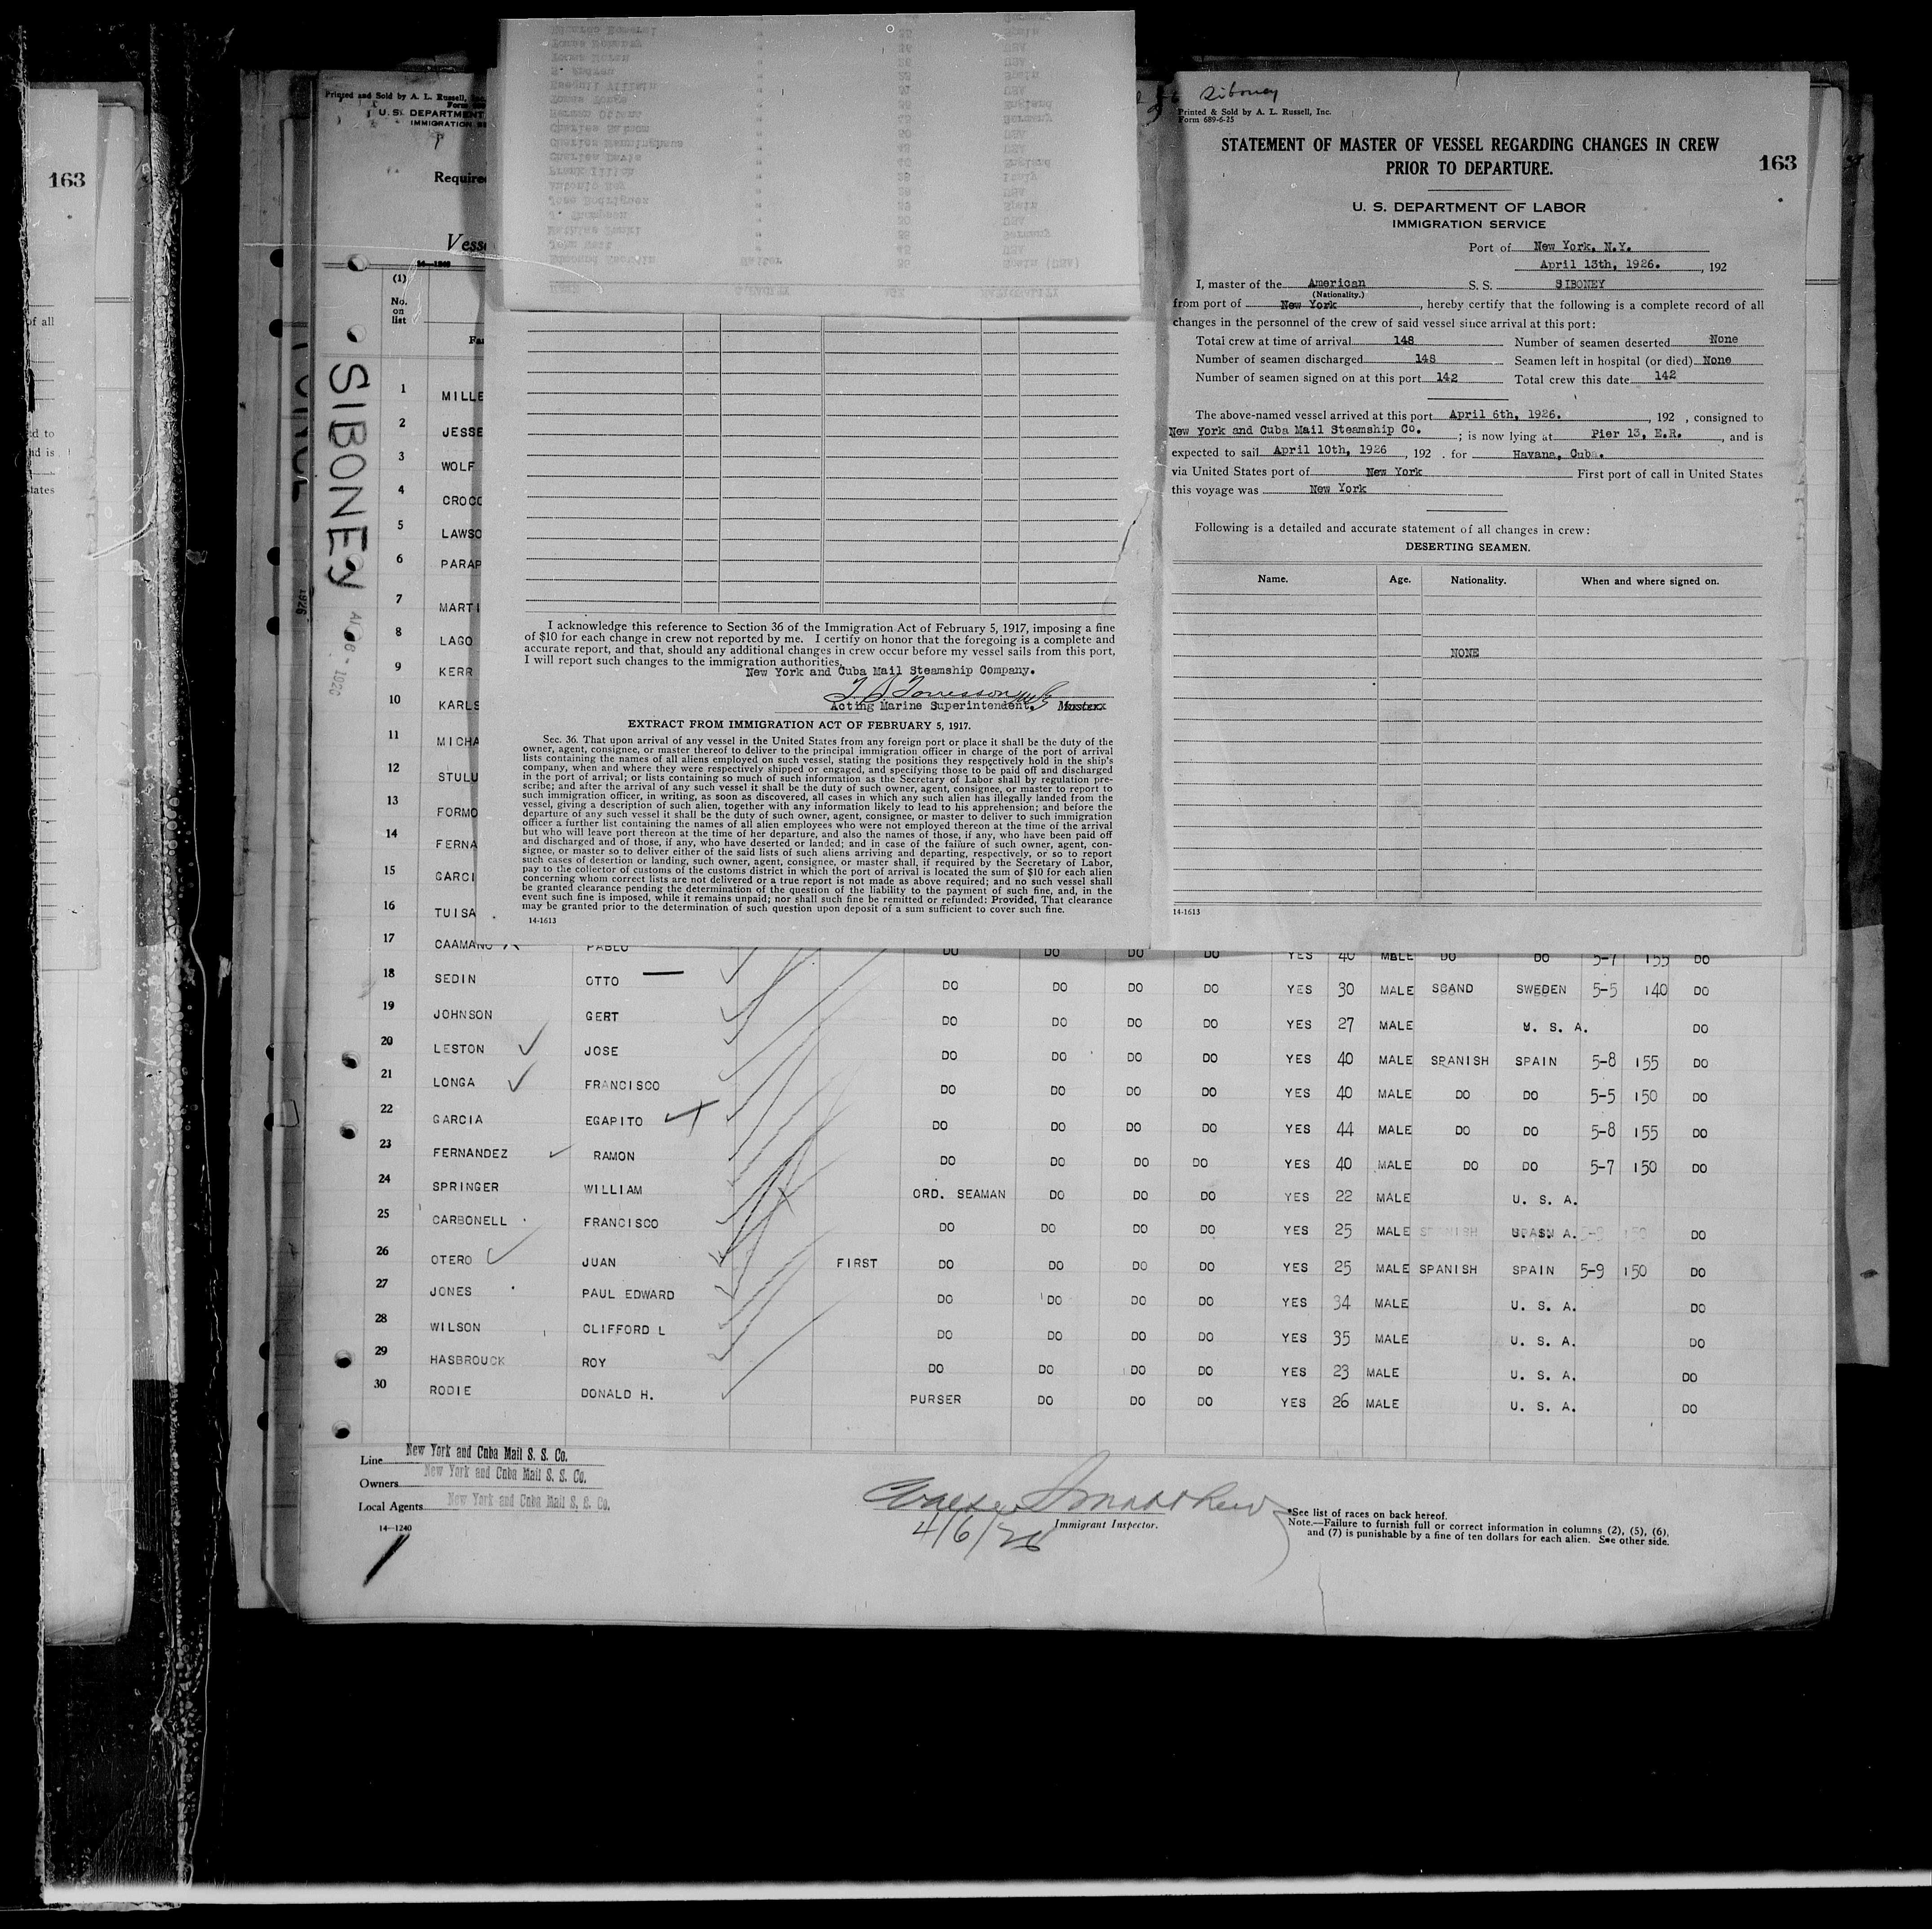 163
of all
ed to
nd is
states
Printed and Sold by A. L. Russell, Inc.
U. S. DEPARTMENT
IMMIGRATION SE
Require
Vesse
(1)
No.
on
list
Fa
SIBONEY
1 MILLE
2 JESSE
3 WOLF
4 CROCC
5 LAWSO
6 PARAP
7 MARTI
8 LAGO
9 KERR
10 KARLS
11 MICHA
12 STULU
13 FORMO
14 FERNA
15 GARCI
16 TUISA
I acknowledge this reference to Section 36 of the Immigration Act of February 5, 1917, imposing a fine
of $10 for each change in crew not reported by me. I certify on honor that the foregoing is a complete and
accurate report, and that, should any additional changes in crew occur before my vessel sails from this port,
I will report such changes to the immigration authorities.
New York and Cuba Mail Steamship Company.
Acting Marine Superintendent.
EXTRACT FROM IMMIGRATION ACT OF FEBRUARY 5, 1917.
Sec. 36. That upon arrival of any vessel in the United States from any foreign port or place it shall be the duty of the
owner, agent, consignee, or master thereof to deliver to the principal immigration officer in charge of the port of arrival
lists containing the names of all aliens employed on such vessel, stating the positions they respectively hold in the ship's
company, when and where they were respectively shipped or engaged, and specifying those to be paid off and discharged
in the port of arrival; or lists containing so much of such information as the Secretary of Labor shall by regulation pre-
scribe; and after the arrival of any such vessel it shall be the duty of such owner, agent, consignee, or master to report to
such immigration officer, in writing, as soon as discovered, all cases in which any such alien has illegally landed from the
vessel, giving a description of such alien, together with any information likely to lead to his apprehension; and before the
departure of any such vessel it shall be the duty of such owner, agent, consignee, or master to deliver to such immigration
officer a further list containing the names of all alien employees who were not employed thereon at the time of the arrival
but who will leave port thereon at the time of her departure, and also the names of those, if any, who have been paid off
and discharged and of those, if any, who have deserted or landed; and in case of the failure of such owner, agent, con-
signee, or master so to deliver either of the said lists of such aliens arriving and departing, respectively, or so to report
such cases of desertion or landing, such owner, agent, consignee, or master shall, if required by the Secretary of Labor,
pay to the collector of customs of the customs district in which the port of arrival is located the sum of $10 for each alien
concerning whom correct lists are not delivered or a true report is not made as above required; and no such vessel shall
be granted clearance pending the determination of the question of the liability to the payment of such fine, and, in the
event such fine is imposed, while it remains unpaid; nor shall such fine be remitted or refunded: Provided, That clearance
may be granted prior to the determination of such question upon deposit of a sum sufficient to cover such fine.
14-1613
Siboney
Printed & Sold by A. L. Russell, Inc.
Form 689-6-25
STATEMENT OF MASTER OF VESSEL REGARDING CHANGES IN CREW
PRIOR TO DEPARTURE.
163
U. S. DEPARTMENT OF LABOR
IMMIGRATION SERVICE
Port of New York, N.Y.
April 13th, 1926. , 192
I, master of the American S. S. SIBONEY
(Nationality.)
from port of New York , hereby certify that the following is a complete record of all
changes in the personnel of the crew of said vessel since arrival at this port:
Total crew at time of arrival 148 Number of seamen deserted None
Number of seamen discharged 148 Seamen left in hospital (or died) None
Number of seamen signed on at this port 142 Total crew this date 142
The above-named vessel arrived at this port April 6th, 1926. , 192 , consigned to
New York and Cuba Mail Steamship Co. ; is now lying at Pier 13, E.R. , and is
expected to sail April 10th, 1926 , 192 . for Havana, Cuba.
via United States port of New York First port of call in United States
this voyage was New York
Following is a detailed and accurate statement of all changes in crew:
DESERTING SEAMEN.
Name. Age. Nationality. When and where signed on.
NONE
14-1613
17 CAAMANO PABLO DO DO DO DO YES 40 MALE DO DO 5-7 155 DO
18 SEDIN OTTO DO DO DO DO YES 30 MALE SCAND SWEDEN 5-5 140 DO
19 JOHNSON GERT DO DO DO DO YES 27 MALE U. S. A. DO
20 LESTON JOSE DO DO DO DO YES 40 MALE SPANISH SPAIN 5-8 155 DO
21 LONGA FRANCISCO DO DO DO DO YES 40 MALE DO DO 5-5 150 DO
22 GARCIA EGAPITO DO DO DO DO YES 44 MALE DO DO 5-8 155 DO
23 FERNANDEZ RAMON DO DO DO DO YES 40 MALE DO DO 5-7 150 DO
24 SPRINGER WILLIAM ORD. SEAMAN DO DO DO YES 22 MALE U. S. A.
25 CARBONELL FRANCISCO DO DO DO DO YES 25 MALE DO
26 OTERO JUAN FIRST DO DO DO DO YES 25 MALE SPANISH SPAIN 5-9 150 DO
27 JONES PAUL EDWARD DO DO DO DO YES 34 MALE U. S. A. DO
28 WILSON CLIFFORD L DO DO DO DO YES 35 MALE U. S. A. DO
29 HASBROUCK ROY DO DO DO DO YES 23 MALE U. S. A. DO
30 RODIE DONALD H. PURSER DO DO DO YES 26 MALE U. S. A. DO
Line New York and Cuba Mail S. S. Co.
Owners New York and Cuba Mail S. S. Co.
Local Agents New York and Cuba Mail S. S. Co.
14-1240
4/6/26
Immigrant Inspector.
*See list of races on back hereof.
Note.—Failure to furnish full or correct information in columns (2), (5), (6),
and (7) is punishable by a fine of ten dollars for each alien. See other side.